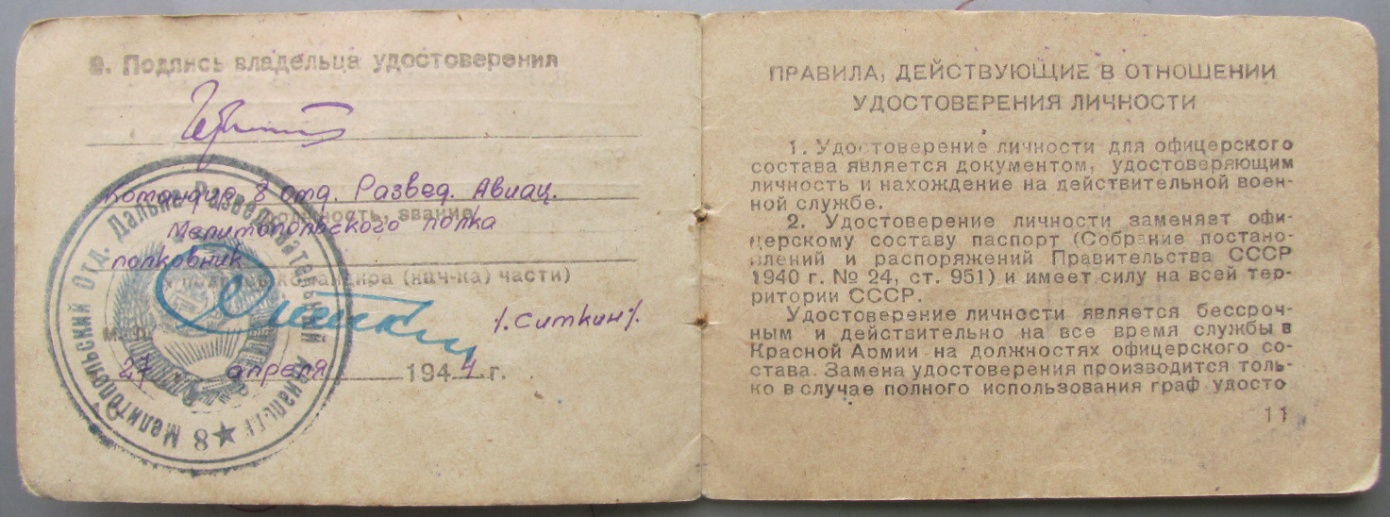 9. Подпись владельца удостоверения
Командир 8 отд. Развед. Авиац.
(должность, звание
Мелитопольского полка
полковник
и подпись командира (нач-ка) части)
/. Ситкин /.
М. П.
27 апреля 1944 г.
8 Мелитопольский Отд. Дальне-Разведывательный Авиаполк
ПРАВИЛА, ДЕЙСТВУЮЩИЕ В ОТНОШЕНИИ
УДОСТОВЕРЕНИЯ ЛИЧНОСТИ
1. Удостоверение личности для офицерского
состава является документом, удостоверяющим
личность и нахождение на действительной воен-
ной службе.
2. Удостоверение личности заменяет офи-
церскому составу паспорт (Собрание постано-
влений и распоряжений Правительства СССР
1940 г. № 24, ст. 951) и имеет силу на всей тер-
ритории СССР.
Удостоверение личности является бессроч-
ным и действительно на все время службы в
Красной Армии на должностях офицерского со-
става. Замена удостоверения производится толь-
ко в случае полного использования граф удосто
11